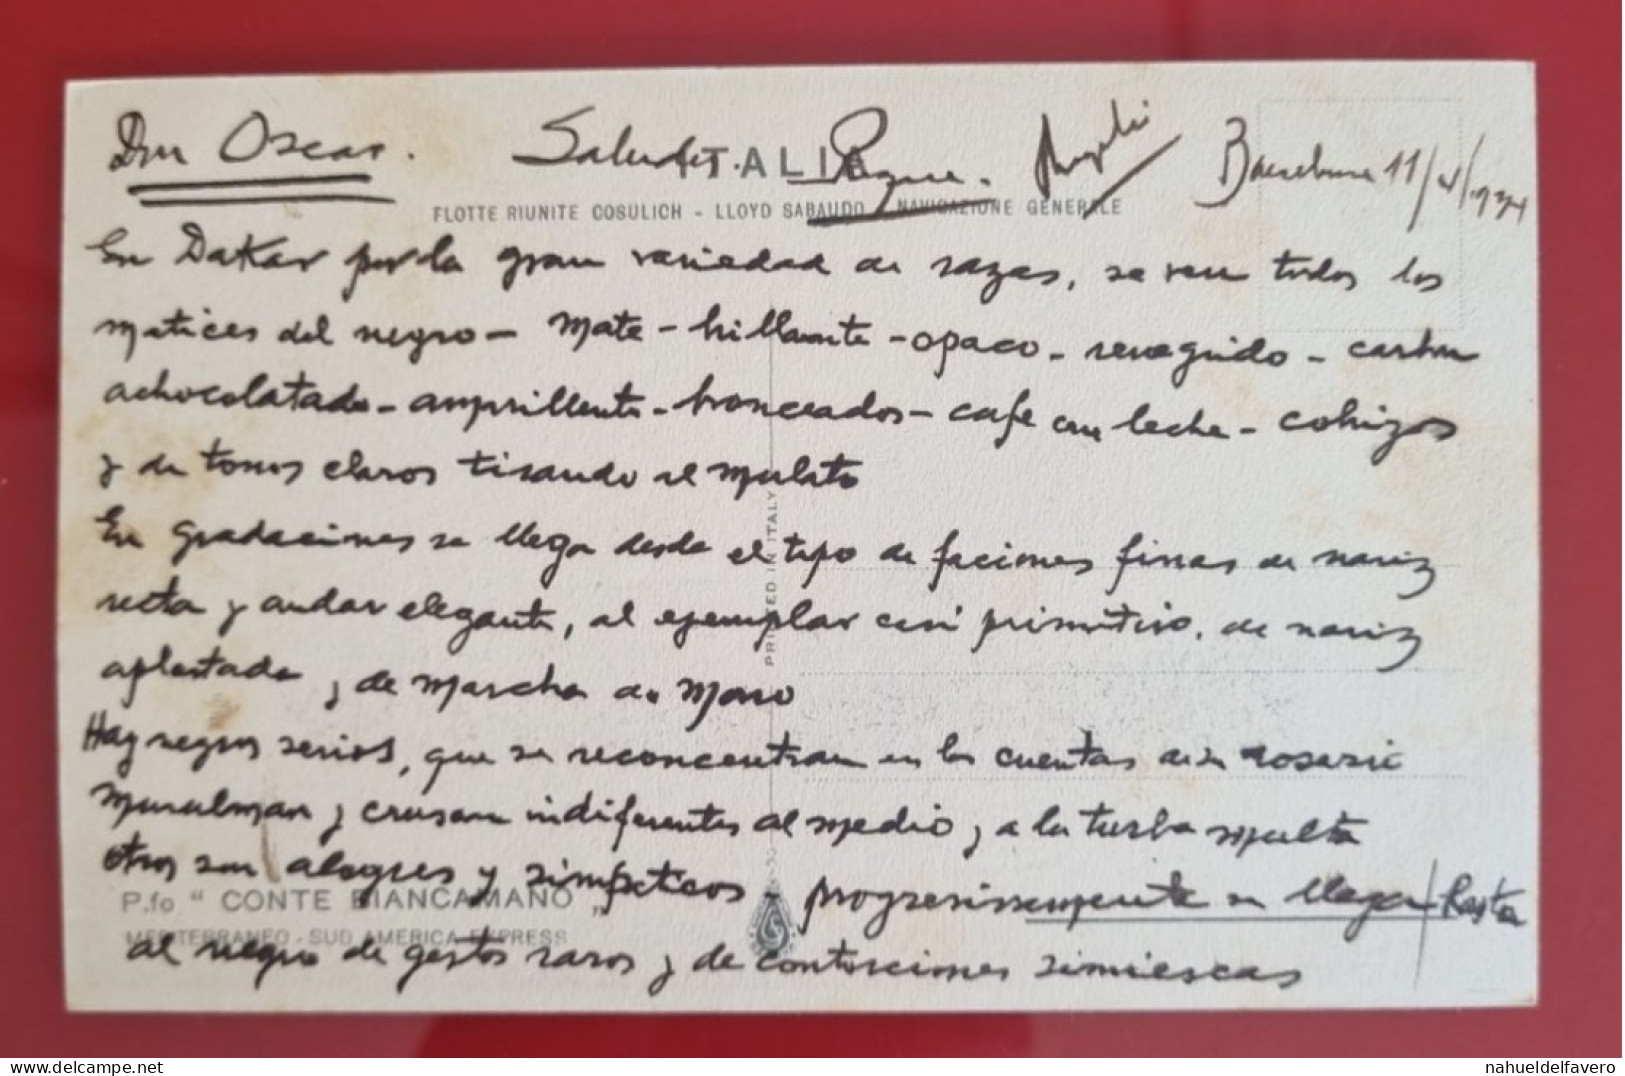 Don Oscar. Saludos. Barcelona 11/4/1934
ITALIA
FLOTTE RIUNITE COSULICH - LLOYD SABAUDO - NAVIGAZIONE GENERALE
En Dakar por la gran variedad de razas, se ven todos los
matices del negro - mate - brillante - opaco - renegrido - carbon
achocolatado - amarillento - bronceados - cafe con leche - cobrizos
y de tonos claros tirando al mulato
En gradaciones se llega desde el tipo de faciones finas de nariz
recta y andar elegante, al ejemplar casi primitivo, de nariz
aplastada y de marcha de mono
Hay negros serios, que se reconcentran en las cuentas de su rosario
musulman y crusan indiferentes al medio y a la turba multa
otros son alegres y simpaticos progresivamente se llega hasta
P.fo " CONTE BIANCAMANO "
MEDITERRANEO - SUD AMERICA EXPRESS
al negro de gestos raros y de contorciones simiescas
PRINTED IN ITALY
delcampe.net
nahueldelfavero